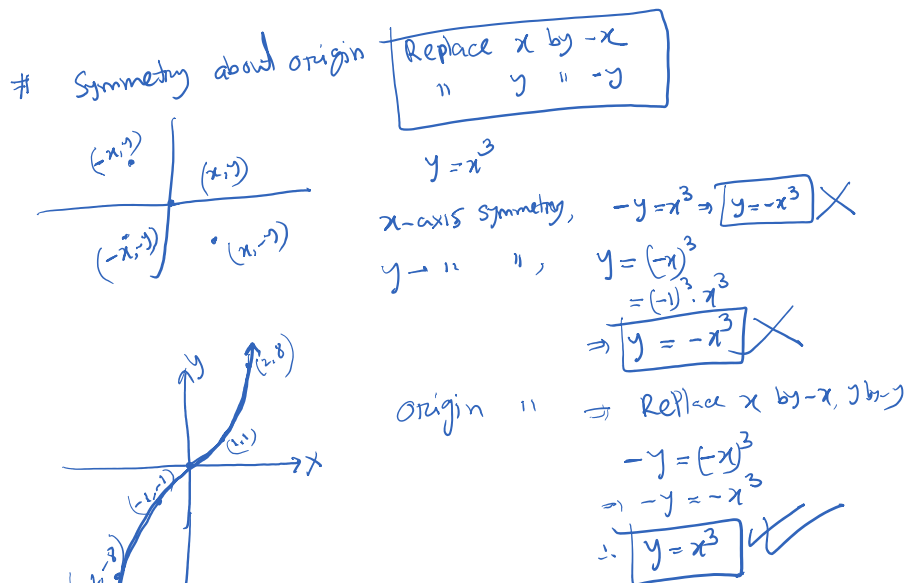 # Symmetry about origin
Replace x by -x
" y " -y
(-x,y)
(x,y)
(-x,-y)
(x,-y)
y = x³
x-axis symmetry, -y = x³ ⇒ y = -x³
y- " ", y = (-x)³
= (-1)³ . x³
⇒ y = -x³
origin " ⇒ Replace x by -x, y by -y
-y = (-x)³
⇒ -y = -x³
∴ y = x³
y
(2,8)
(1,1)
x
(-1,-1)